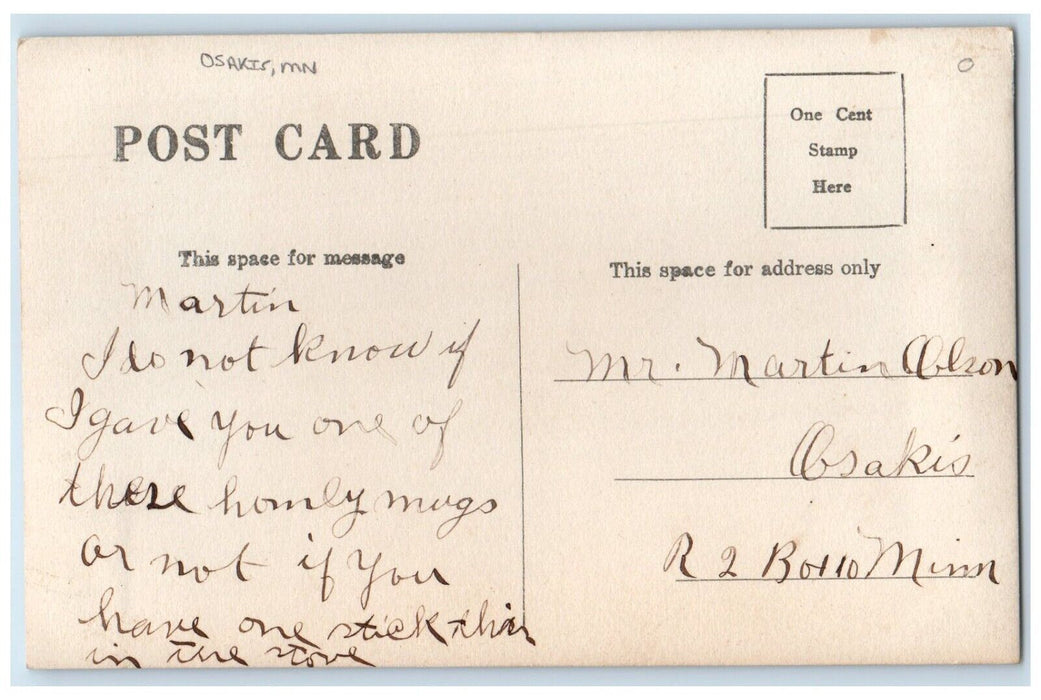 OSAKIS, MN
O
POST CARD
One Cent
Stamp
Here
This space for message
This space for address only
Martin
I do not know if
I gave you one of
these homly mugs
or not if you
have one stick this
in the stove
Mr. Martin Olson
Osakis
R 2 Box 10 Minn